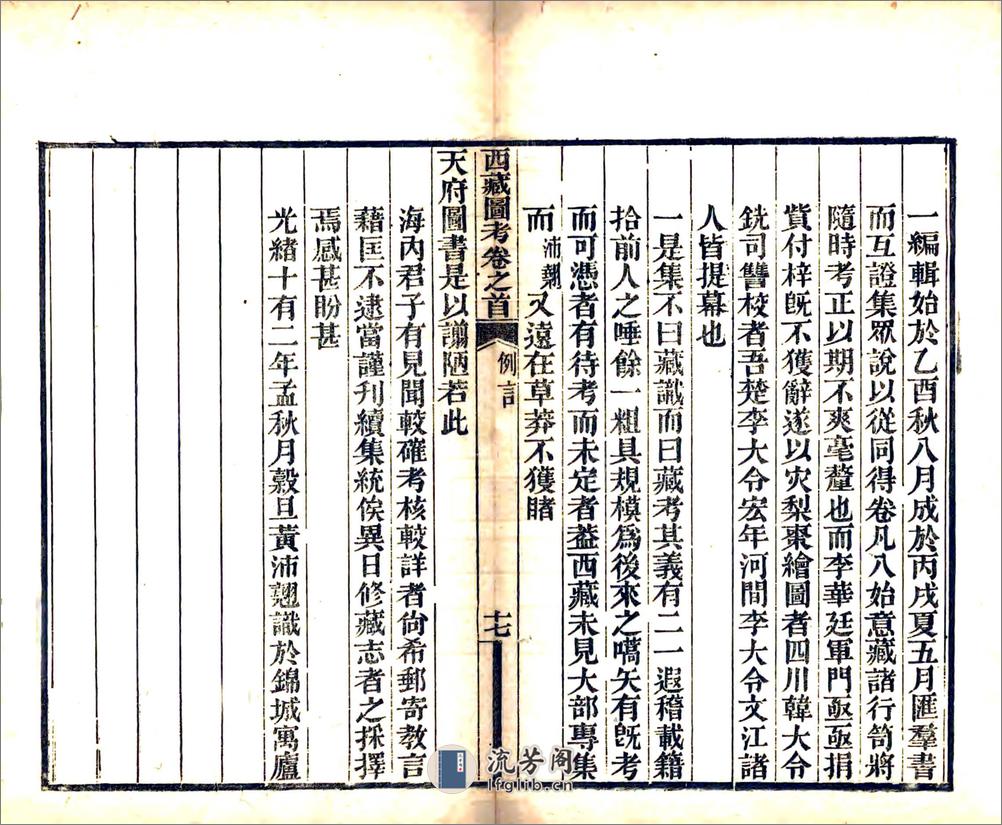 一編輯始於乙酉秋八月成於丙戌夏五月匯羣書
而互證集眾說以從同得卷凡八始意藏諸行笥將
隨時考正以期不爽毫釐也而李華廷軍門亟亟捐
貲付梓旣不獲辭遂以災梨棗繪圖者四川韓大令
銑司讐校者吾楚李大令宏年河間李大令文江諸
人皆提幕也
一是集不曰藏識而曰藏考其義有二一遐稽載籍
拾前人之唾餘一粗具規模爲後來之嚆矢有旣考
而可憑者有待考而未定者葢西藏未見大部專集
而沛翹又遠在草莽不獲睹
西藏圖考卷之首
例言
十七
天府圖書是以譾陋若此
海內君子有見聞較確考核較詳者尙希郵寄敎言
藉匡不逮當謹刊續集統俟異日修藏志者之採擇
焉感甚盼甚
光緒十有二年孟秋月穀旦黃沛翹識於錦城寓廬
流芳阁
lfglib.cn